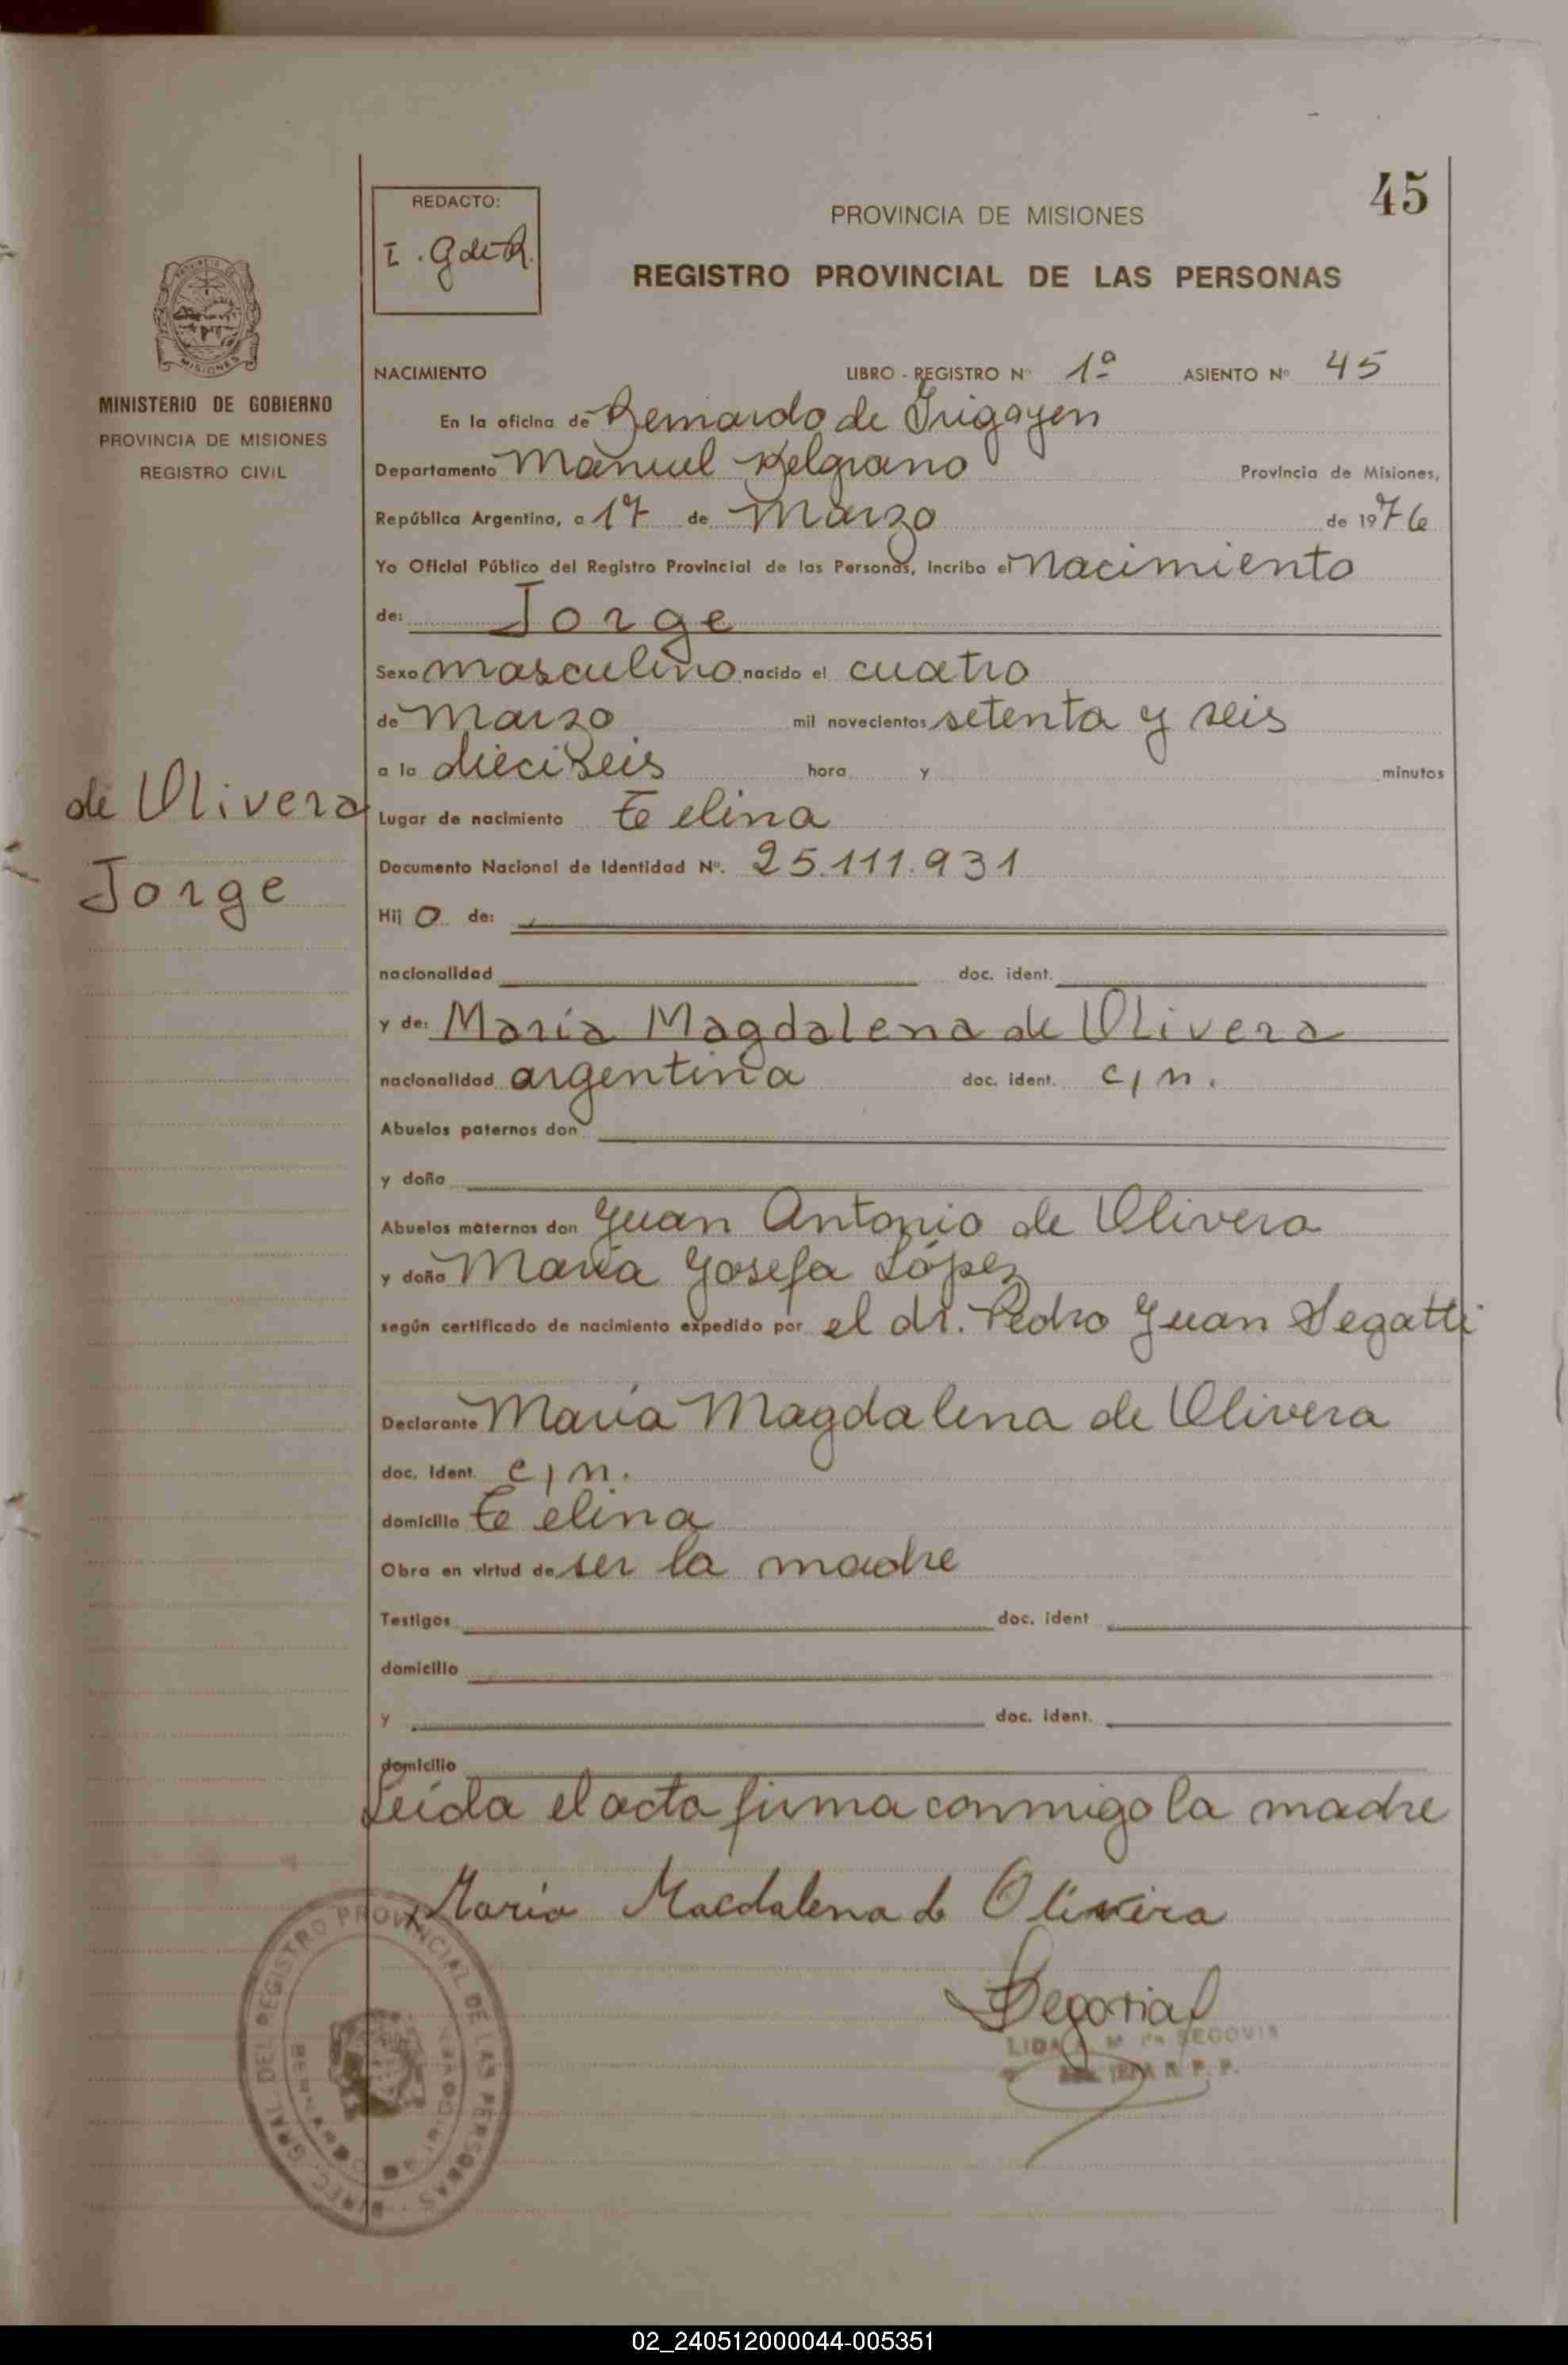 45
REDACTO:
I. G de R.
PROVINCIA DE MISIONES
REGISTRO PROVINCIAL DE LAS PERSONAS
MISIONES
MINISTERIO DE GOBIERNO
PROVINCIA DE MISIONES
REGISTRO CIVIL
NACIMIENTO LIBRO - REGISTRO Nº 1º ASIENTO Nº 45
En la oficina de Bernardo de Irigoyen
Departamento Manuel Belgrano Provincia de Misiones,
República Argentina, a 17 de Marzo de 1976
Yo Oficial Público del Registro Provincial de las Personas, incribo el Nacimiento
de: Jorge
Sexo masculino nacido el cuatro
de Marzo mil novecientos setenta y seis
a la dieciseis hora y minutos
de Olivera
Jorge
Lugar de nacimiento elina
Documento Nacional de Identidad Nº. 25.111.931
Hij o de:
nacionalidad doc. ident.
y de: María Magdalena de Olivera
nacionalidad argentina doc. ident. c/n.
Abuelos paternos don
y doña
Abuelos maternos don Juan Antonio de Olivera
y doña María Josefa López
según certificado de nacimiento expedido por el dr. Pedro Juan Segatti
Declarante María Magdalena de Olivera
doc. ident. c/n.
domicilio elina
Obra en virtud de ser la madre
Testigos doc. ident
domicilio
y doc. ident.
domicilio
Leída el acta firma conmigo la madre
x María Macdalena d Olivera
LIDA M SEGOVIA
R. P. P.
DIREC. GRAL. DEL REGISTRO PROVINCIAL DE LAS PERSONAS
02_240512000044-005351